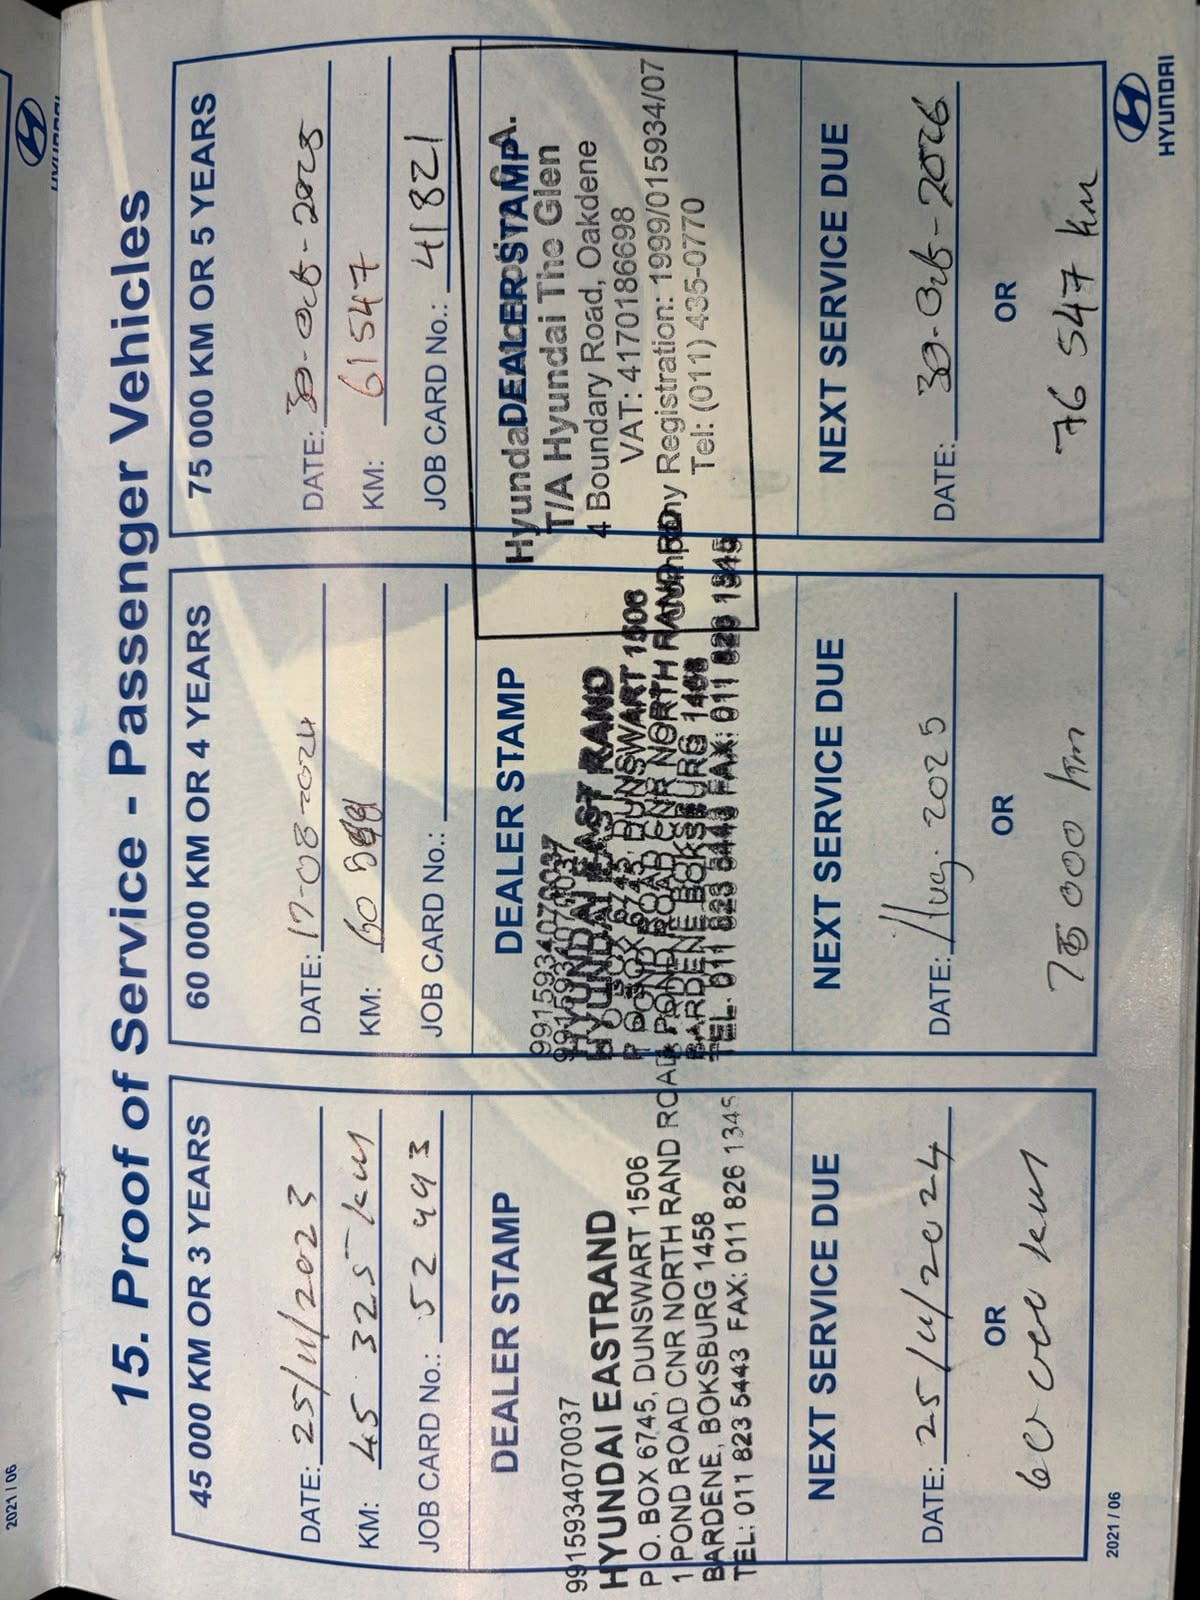 15. Proof of Service - Passenger Vehicles
45 000 KM OR 3 YEARS
DATE: 25/11/2023
KM: 45 325 km
JOB CARD No.: 52443
DEALER STAMP
9915934070037
HYUNDAI EASTRAND
P.O. BOX 6745, DUNSWART 1506
1 POND ROAD CNR NORTH RAND ROAD
BARDENE, BOKSBURG 1458
TEL: 011 823 5443 FAX: 011 826 1345
NEXT SERVICE DUE
DATE: 25/11/2024
OR
60 000 km
60 000 KM OR 4 YEARS
DATE: 17-08-2024
KM: 60
JOB CARD No.:
DEALER STAMP
9915934070037
HYUNDAI EAST RAND
P O BOX 6745 DUNSWART 1506
POND ROAD CNR NORTH RAND RD
BARDENE BOKSBURG 1458
TEL: 011 823 5443 FAX: 011 826 1345
NEXT SERVICE DUE
DATE: Aug. 2025
OR
75 000 km
75 000 KM OR 5 YEARS
DATE: 30-Oct-2025
KM: 61547
JOB CARD No.: 41821
DEALER STAMP
Hyundai
T/A Hyundai The Glen
4 Boundary Road, Oakdene
VAT: 4170186698
Company Registration: 1999/015934/07
Tel: (011) 435-0770
NEXT SERVICE DUE
DATE: 30-Oct-2026
OR
76 547 km
2021 / 06
HYUNDAI
2021 / 06
HYUNDAI